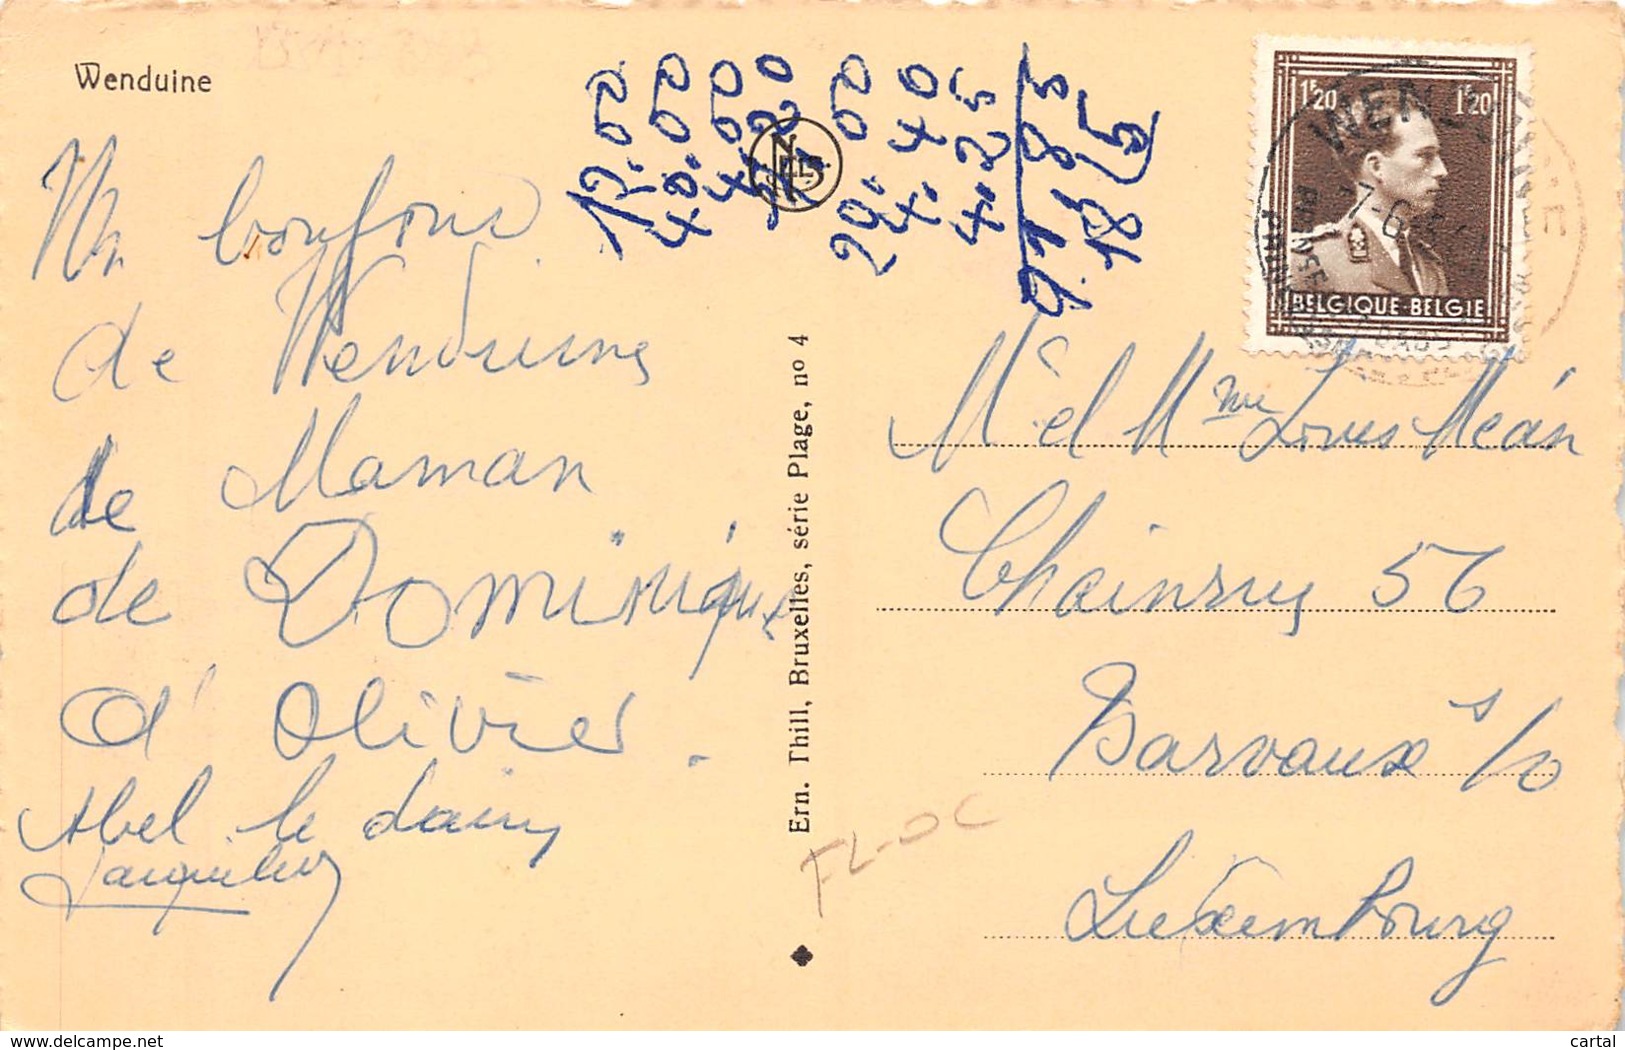 Wenduine
Un bonjour
de Wenduine
de Maman
de Dominique
d'Olivier.
Abel
Jacqueline
12.50
40.50
4.50
29.50
4.40
4.25
Ern. Thill, Bruxelles, série Plage, no 4
NELS
1F20 1F20
BELGIQUE-BELGIE
WEN
Mr et Mme Louis Meán
Chainrue 56
Barvaux s/o
Luxembourg
FL-OC
delcampe.net
cartal